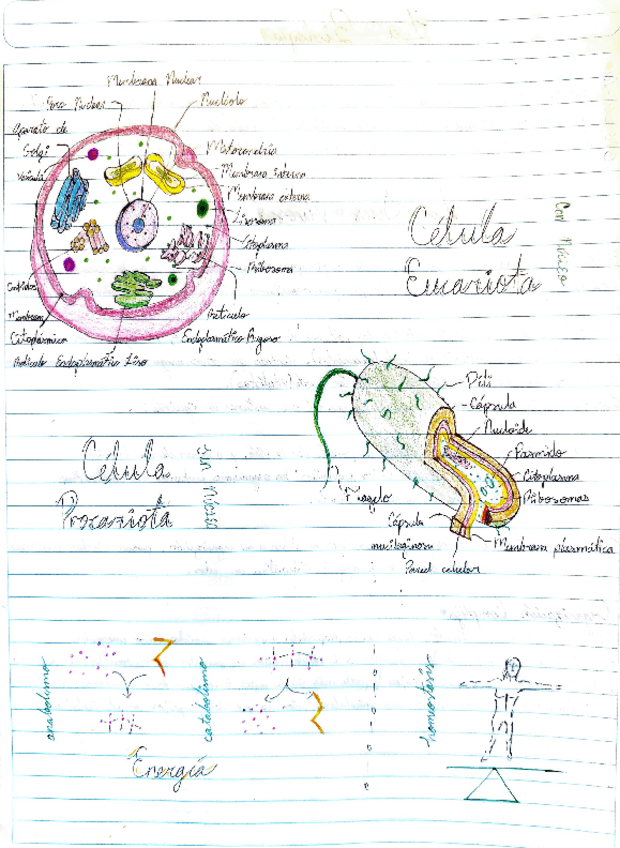 Membrana Nuclear
Poro Nuclear
Nucléolo
Aparato de
Golgi
Mitocondria
Vesícula
Membrana Interna
Membrana externa
Lisosoma
Citoplasma
Ribosoma
Centriolos
Retículo
Endoplasmático Rugoso
Membrana
Citoplásmica
Retículo Endoplasmático Liso
Célula
Eucariota
Con Núcleo
Pili
Cápsula
Nucleoide
Plasmido
Citoplasma
Ribosomas
Flagelo
Cápsula
mucilaginosa
Membrana plasmática
Pared celular
Célula
Procariota
Sin Núcleo
anabolismo
catabolismo
Energía
homeostasis